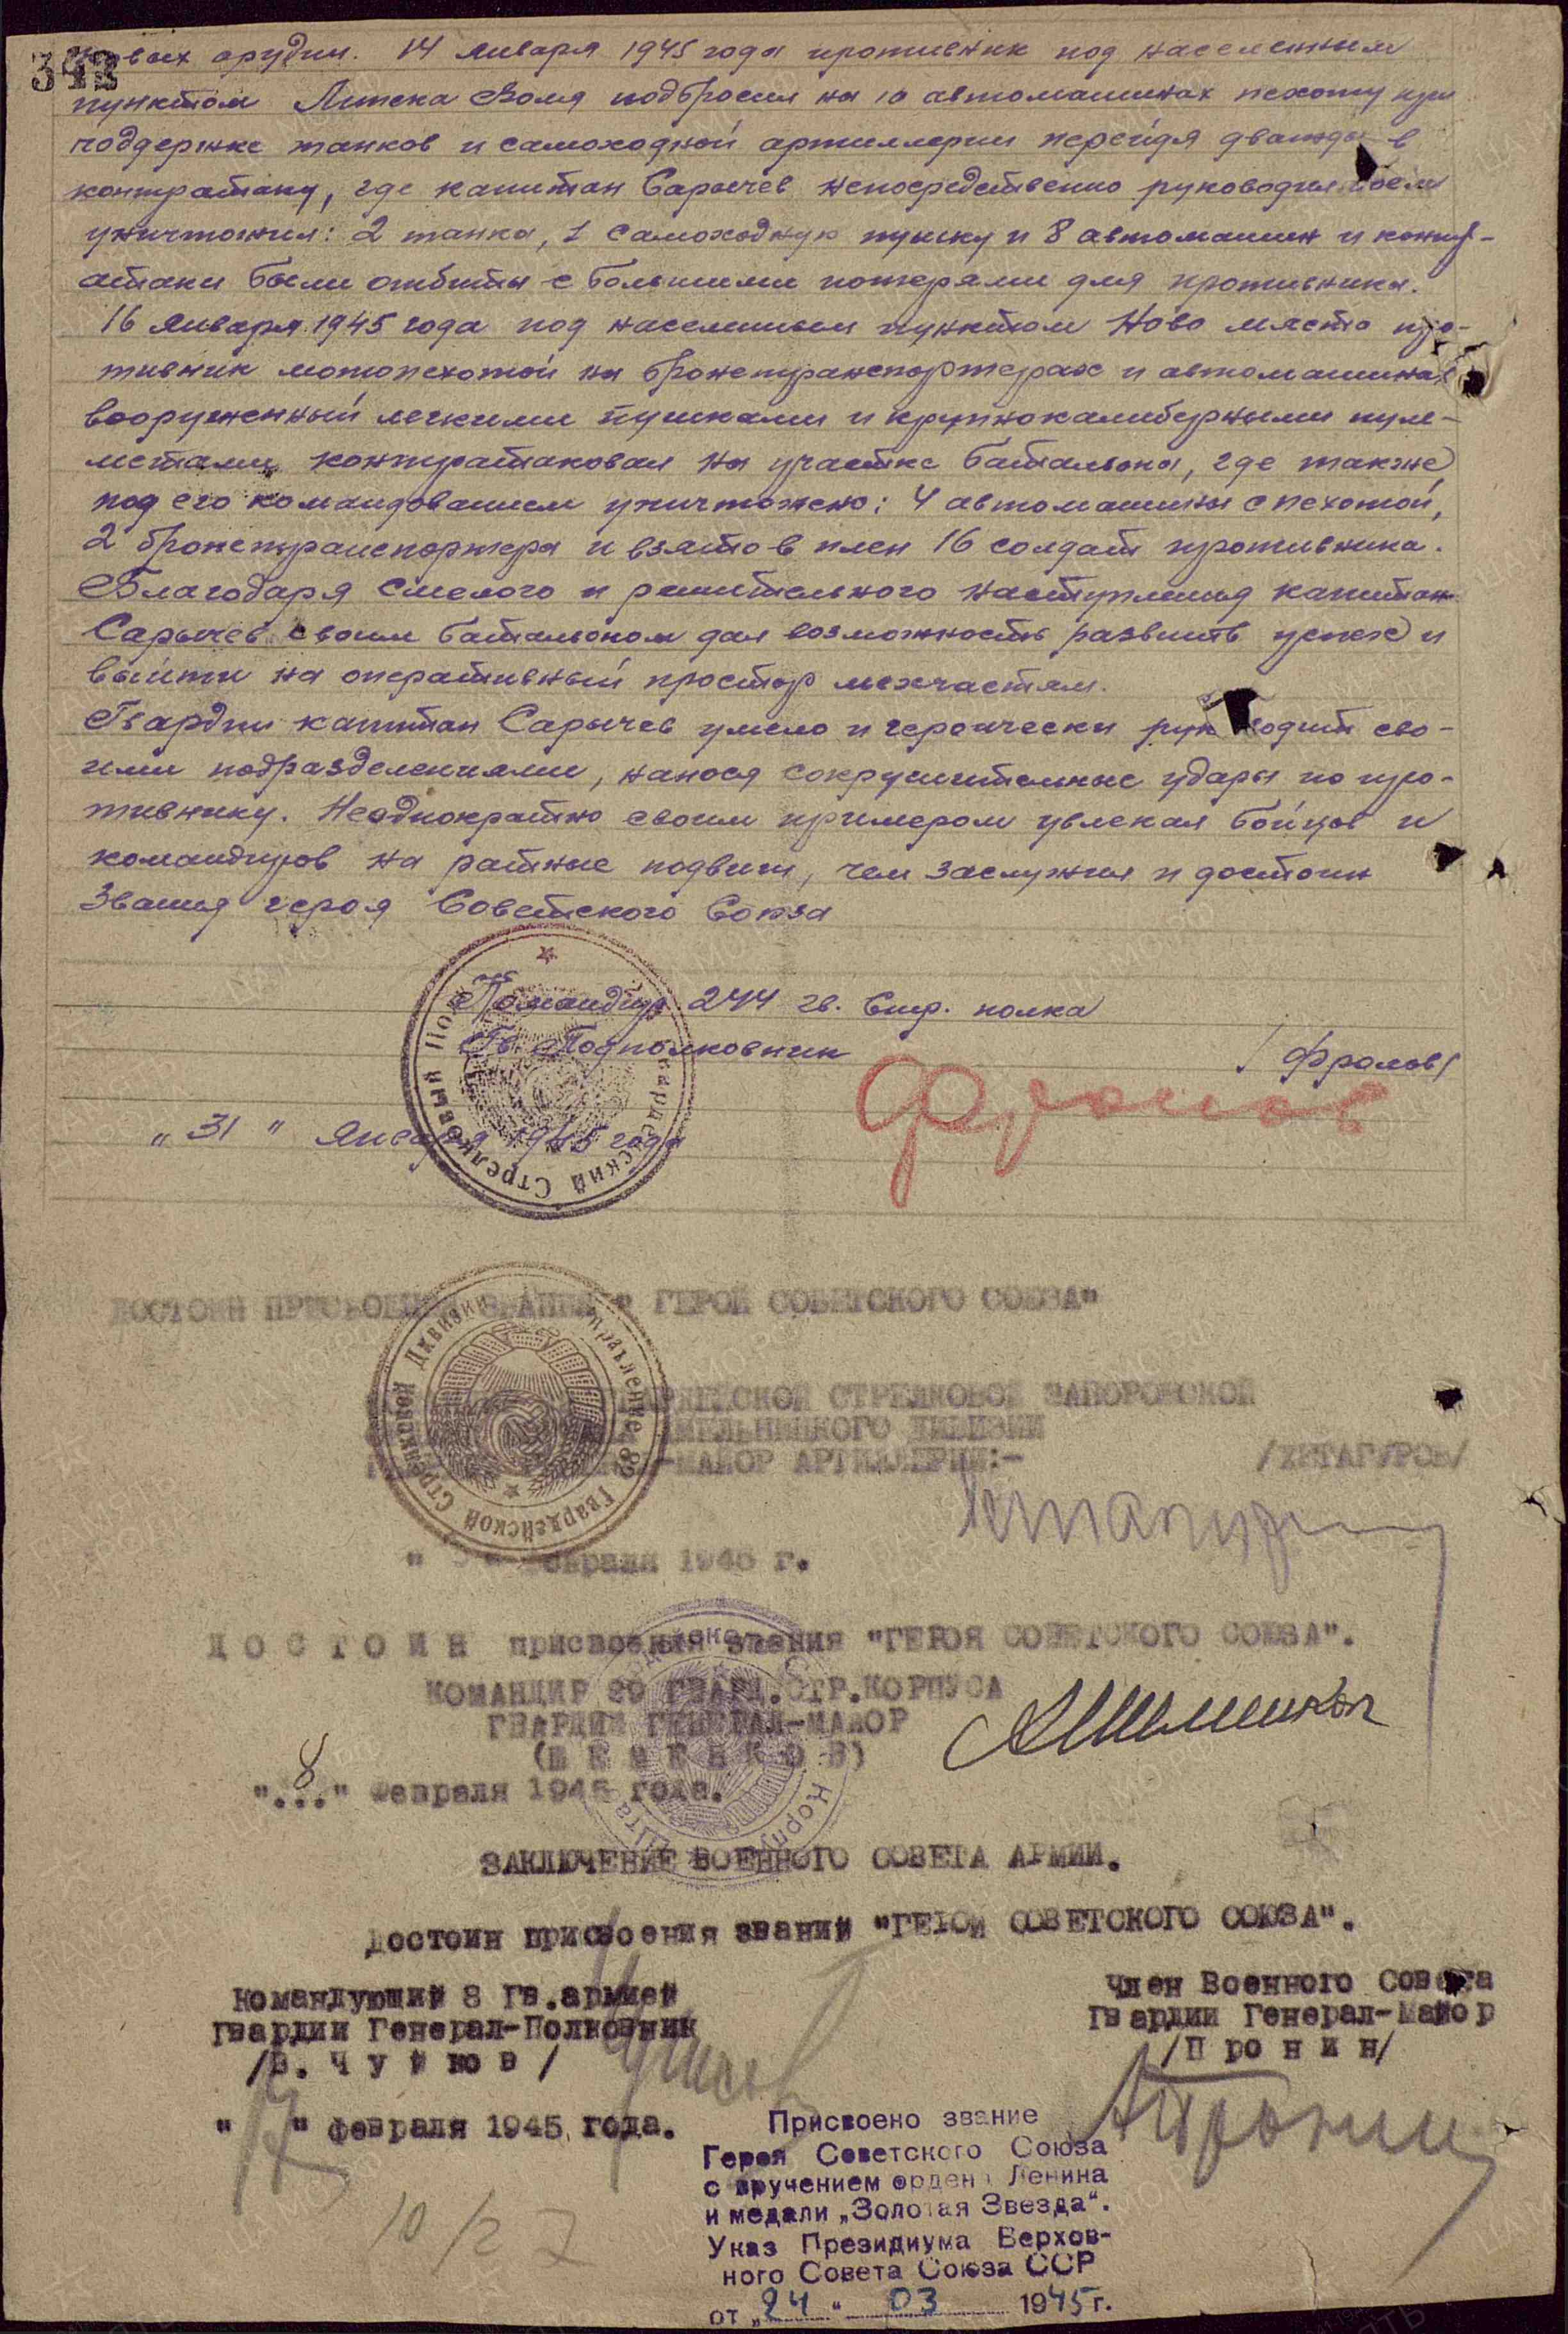 342
вых орудии. 14 января 1945 года противник под населенным
пунктом Липска Воля подбросил на 10 автомашинах пехоту при
поддержке танков и самоходной артиллерии перейдя дважды в
контратаку, где капитан Сарычев непосредственно руководил боем
уничтожил: 2 танка, 1 самоходную пушку и 8 автомашин и контр-
атаки были отбиты с большими потерями для противника.
16 января 1945 года под населенным пунктом Ново място про-
тивник мотопехотой на бронетранспортерах и автомашинах
вооруженный легкими пушками и крупнокалиберными пуле-
метами контратаковал на участке батальона, где также
под его командованием уничтожено: 4 автомашины с пехотой,
2 бронетранспортера и взято в плен 16 солдат противника.
Благодаря смелого и решительного наступления капитан
Сарычев своим батальоном дал возможность развить успех и
выйти на оперативный простор мехчастям.
Гвардии капитан Сарычев умело и героически руководит сво-
ими подразделениями, нанося сокрушительные удары по про-
тивнику. Неоднократно своим примером увлекал бойцов и
командиров на ратные подвиги, чем заслужил и достоин
звания героя Советского Союза
Командир 244 гв. Стр. полка
Гв. Подполковник /Фролов/
Фролов
"31" января 1945 года
Гвардейский Стрелковый Полк
ДОСТОИН ПРИСВОЕНИЯ ЗВАНИЯ " ГЕРОЙ СОВЕТСКОГО СОЮЗА"
ГВАРДЕЙСКОЙ СТРЕЛКОВОЙ ЗАПОРОЖСКОЙ
ХМЕЛЬНИЦКОГО ДИВИЗИИ
-МАЙОР АРТИЛЛЕРИИ:- /ХЕТАГУРОВ/
Управление 82 Гвардейской Стрелковой Дивизии
Хетагуров
февраля 1945 г.
ДОСТОИН присвоения звания "ГЕРОЯ СОВЕТСКОГО СОЮЗА".
КОМАНДИР 29 ГВАРД.СТР.КОРПУСА
ГВАРДИИ ГЕНЕРАЛ-МАЙОР
(ШЕМЕНКОВ)
АШеменков
"8" февраля 1945 года.
ЗАКЛЮЧЕНИЕ ВОЕННОГО СОВЕТА АРМИИ.
Достоин присвоения званий "ГЕРОЙ СОВЕТСКОГО СОЮЗА".
Командующий 8 Гв.армией Член Военного Совета
Гвардии Генерал-Полковник Гвардии Генерал-Майор
/В. Чуйков/ /Пронин/
Чуйков АПронин
" " февраля 1945 года.
10/2
Присвоено звание
Героя Советского Союза
с вручением ордена Ленина
и медали „Золотая Звезда“.
Указ Президиума Верхов-
ного Совета Союза ССР
от „24“ 03 1945г.